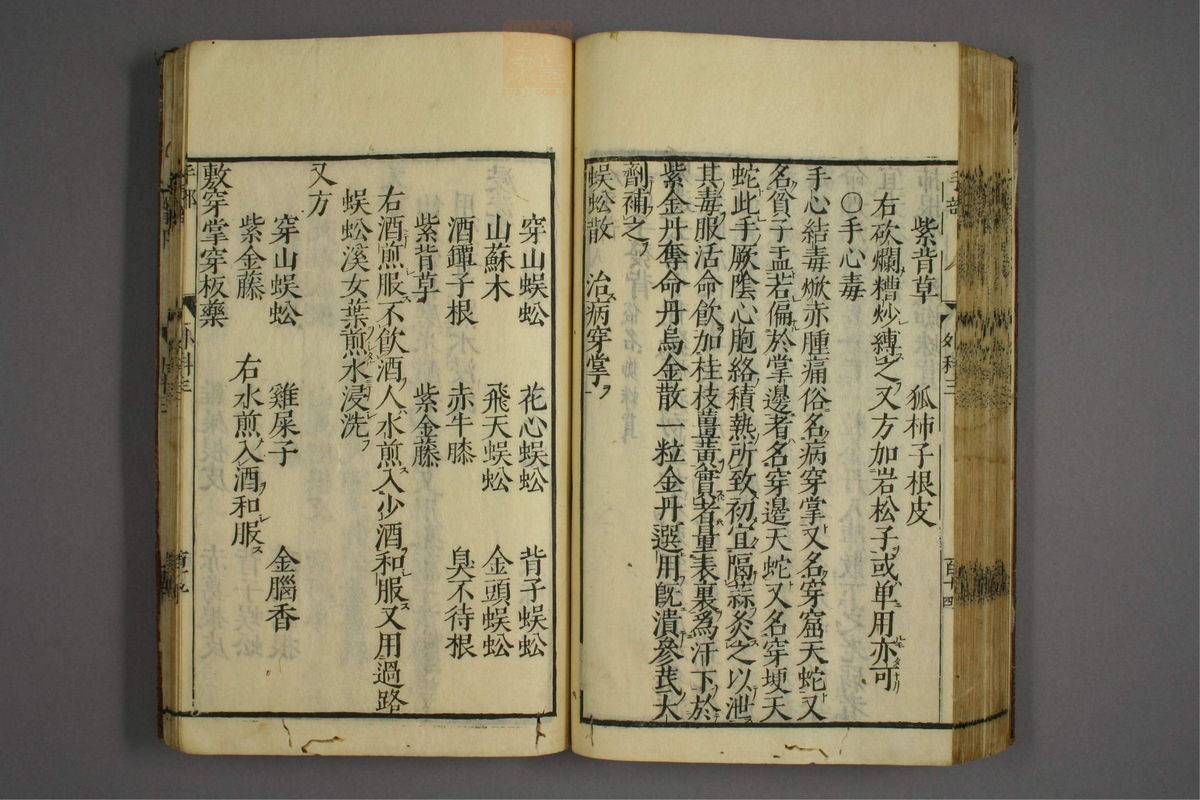 紫背草 狐柿子根皮
右砍爛糟炒縛之又方加岩松子或单用亦可
〇手心毒
手心結毒焮赤腫痛俗名病穿掌又名穿窟天蛇又
名貧子盂若偏於掌邊者名穿邊天蛇又名穿埂天
蛇此手厥陰心胞絡積熱所致初宜隔蒜灸之以泄
其毒服活命飲加桂枝薑黃實者量表裏爲汗下於
紫金丹奪命丹烏金散一粒金丹選用旣潰參芪大
劑補之
蜈蚣散 治病穿掌
穿山蜈蚣 花心蜈蚣 背子蜈蚣
山蘇木 飛天蜈蚣 金頭蜈蚣
酒罈子根 赤牛膝 臭不待根
紫背草 紫金藤
右酒煎服不飲酒人水煎入少酒和服又用過路
蜈蚣溪女葉煎水浸洗
又方
穿山蜈蚣 雞屎子 金腦香
紫金藤 右水煎入酒和服
敷穿掌穿板藥
手部
外科三
百十四